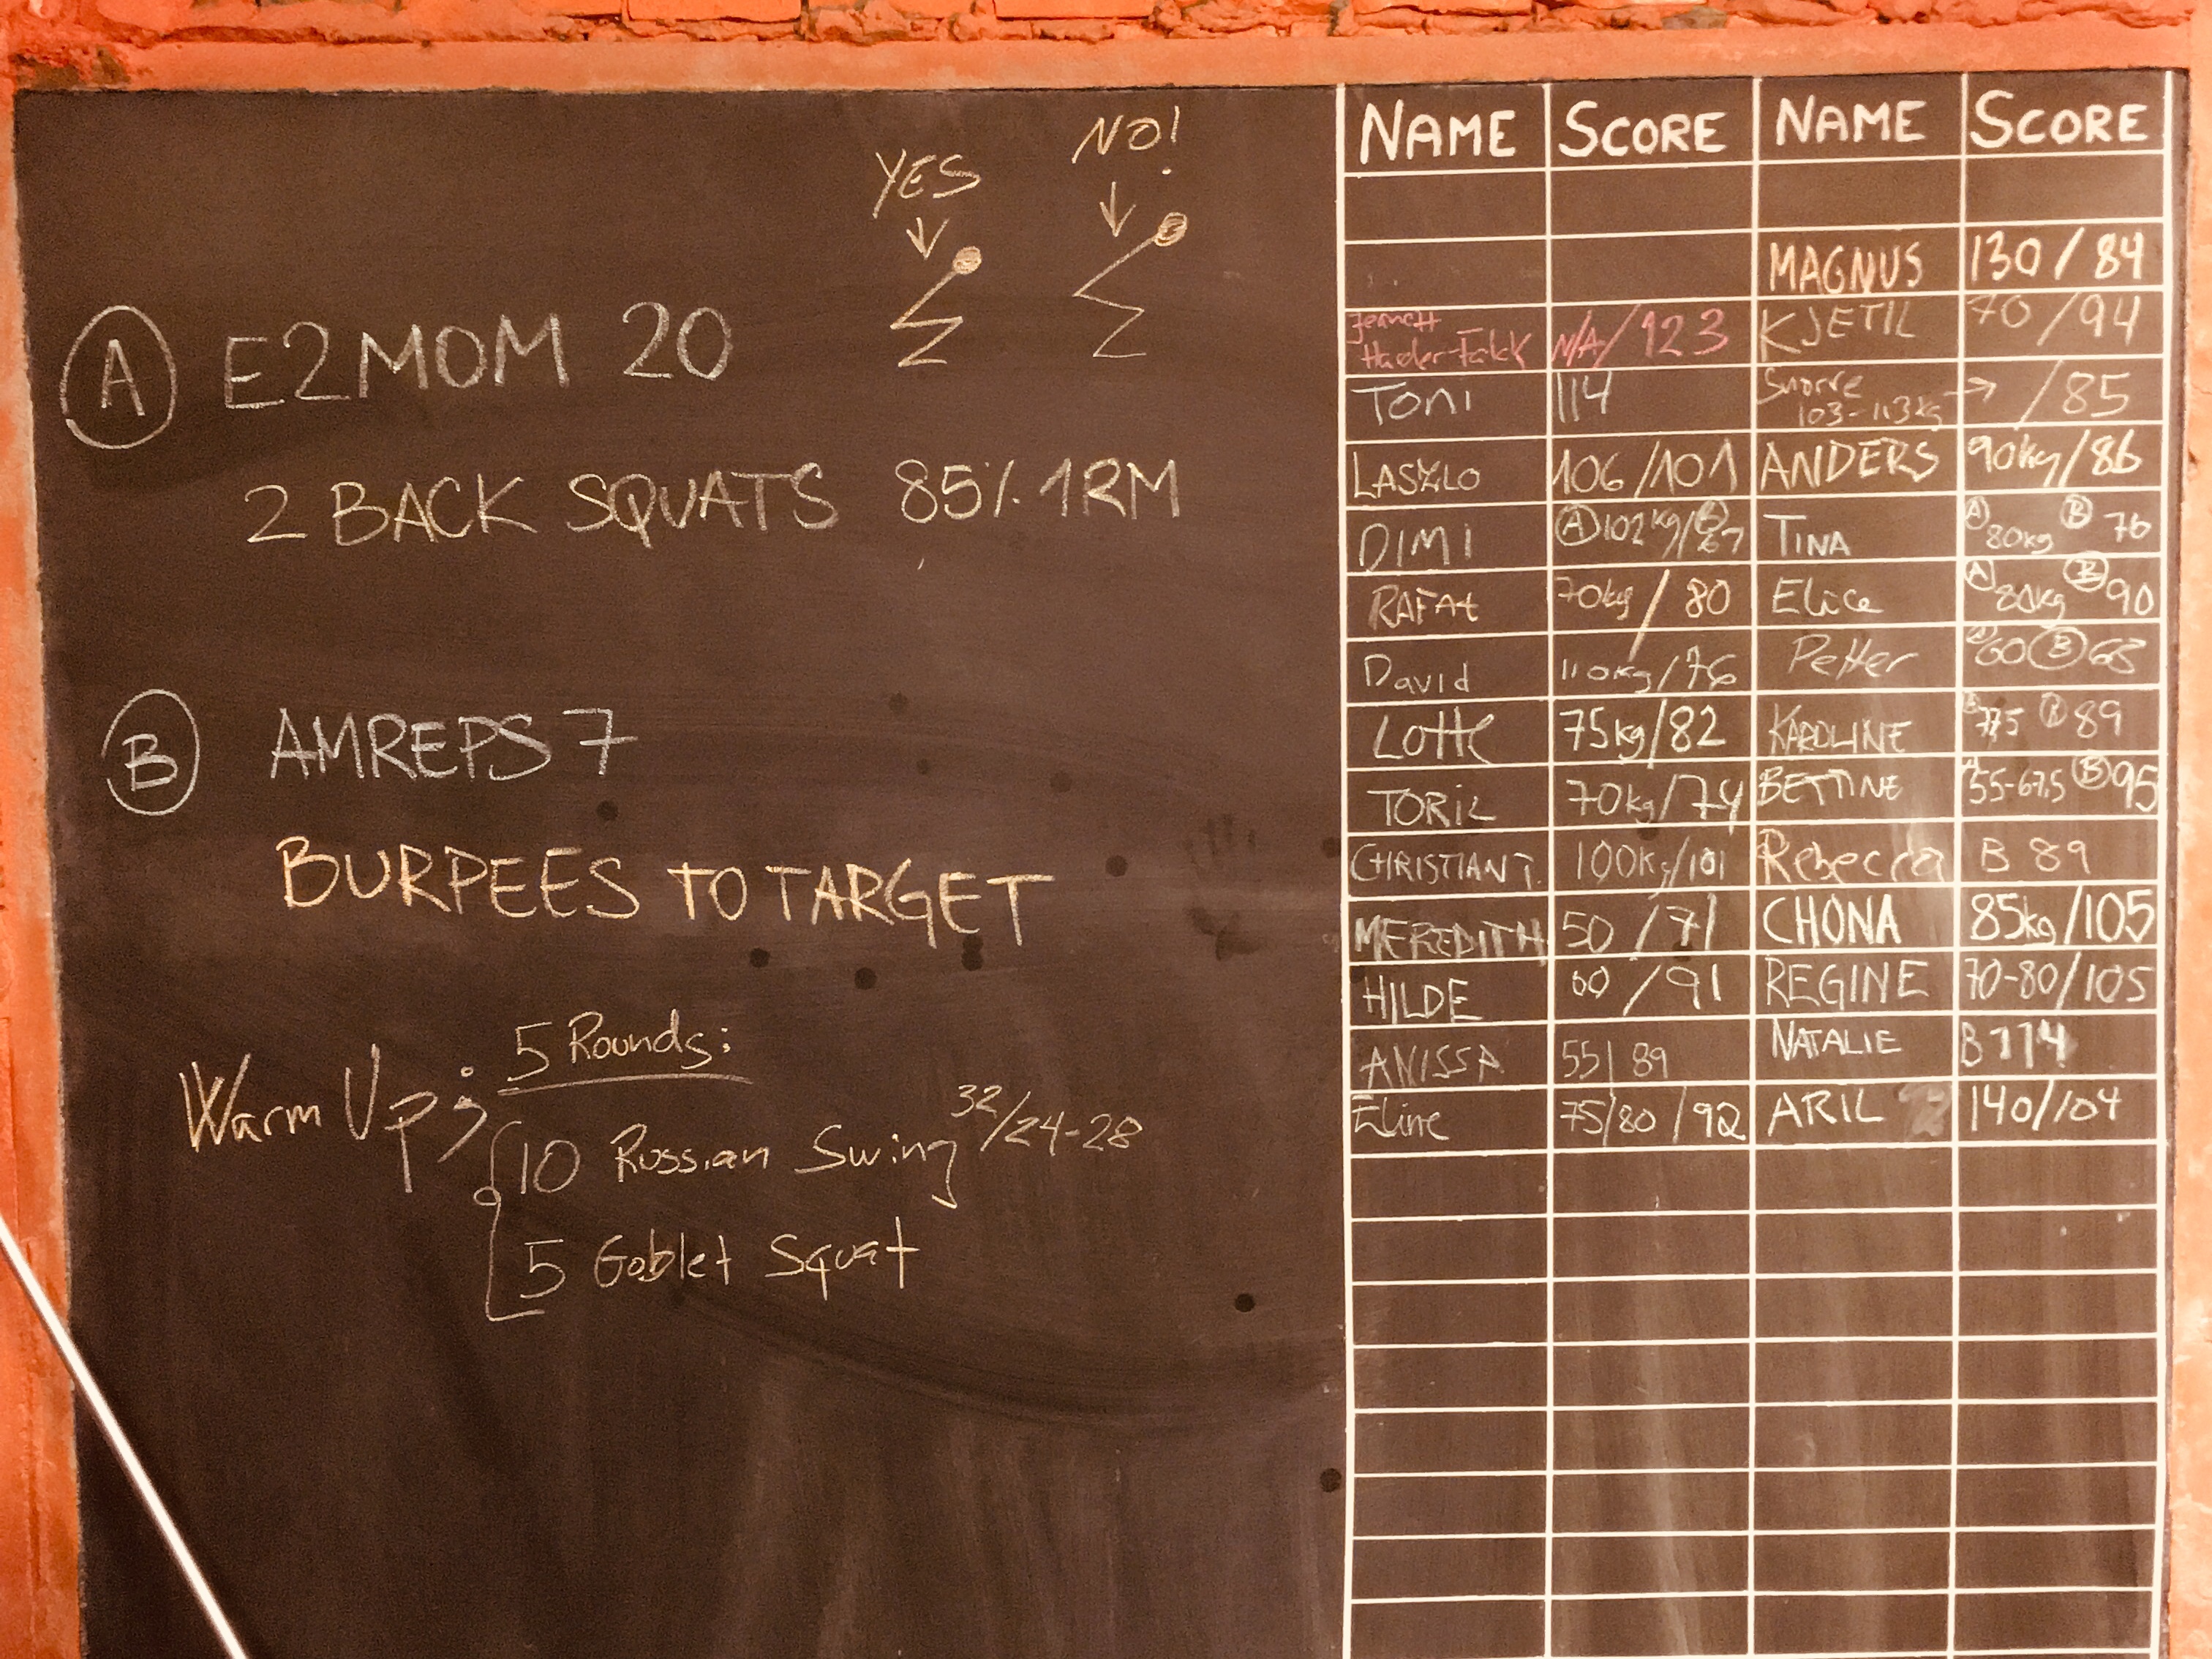 YES
NO!
A E2MOM 20
2 BACK SQUATS 85% 1RM
B AMREPS 7
BURPEES TO TARGET
Warm Up; 5 Rounds:
10 Russian Swing 32/24-28
5 Goblet Squat
NAME SCORE NAME SCORE
MAGNUS 130/84
N/A/123 KJETIL 70/94
Toni 114 Snorre 103-113kg → /85
LASZLO 106/101 ANDERS 90kg/86
DIMI A 102kg/B 67 TINA A 80kg B 76
RAFAt 70kg/80 Elice A 80kg B 90
David 110kg/76 Petter A 60 B 68
Lotte 75kg/82 KAROLINE 77,5 89
TORIL 70kg/74 BETTINE 55-67,5 B 95
CHRISTIAN T. 100Kg/101 Rebecca B 89
MEREDITH 50/71 CHONA 85kg/105
HILDE 60/91 REGINE 70-80/105
ANISSA 55/89 NATALIE B 114
Eline 75/80/92 ARIL 140/104